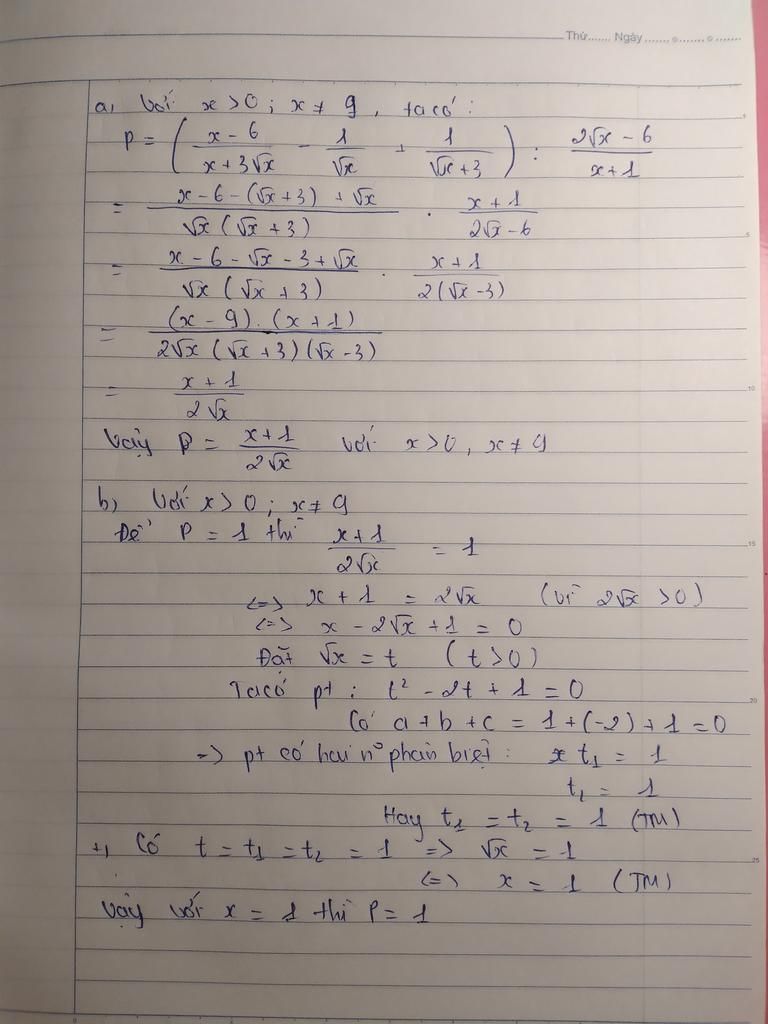 Thứ....... Ngày.......................
a, Với x > 0 ; x ≠ 9 , ta có :
P = ( (x - 6)/(x + 3√x) - 1/√x + 1/(√x + 3) ) : (2√x - 6)/(x + 1)
= (x - 6 - (√x + 3) + √x)/(√x (√x + 3)) . (x + 1)/(2√x - 6)
= (x - 6 - √x - 3 + √x)/(√x (√x + 3)) . (x + 1)/(2(√x - 3))
= ((x - 9) . (x + 1))/(2√x (√x + 3)(√x - 3))
= (x + 1)/(2√x)
Vậy P = (x + 1)/(2√x) với x > 0, x ≠ 9
b, Với x > 0 ; x ≠ 9
Để P = 1 thì (x + 1)/(2√x) = 1
<=> x + 1 = 2√x (vì 2√x > 0)
<=> x - 2√x + 1 = 0
Đặt √x = t (t > 0)
Ta có pt : t² - 2t + 1 = 0
Có a + b + c = 1 + (-2) + 1 = 0
=> pt có hai n° phân biệt : t₁ = 1
t₂ = 1
Hay t₁ = t₂ = 1 (TM)
+, Có t = t₁ = t₂ = 1 => √x = 1
<=> x = 1 (TM)
Vậy với x = 1 thì P = 1